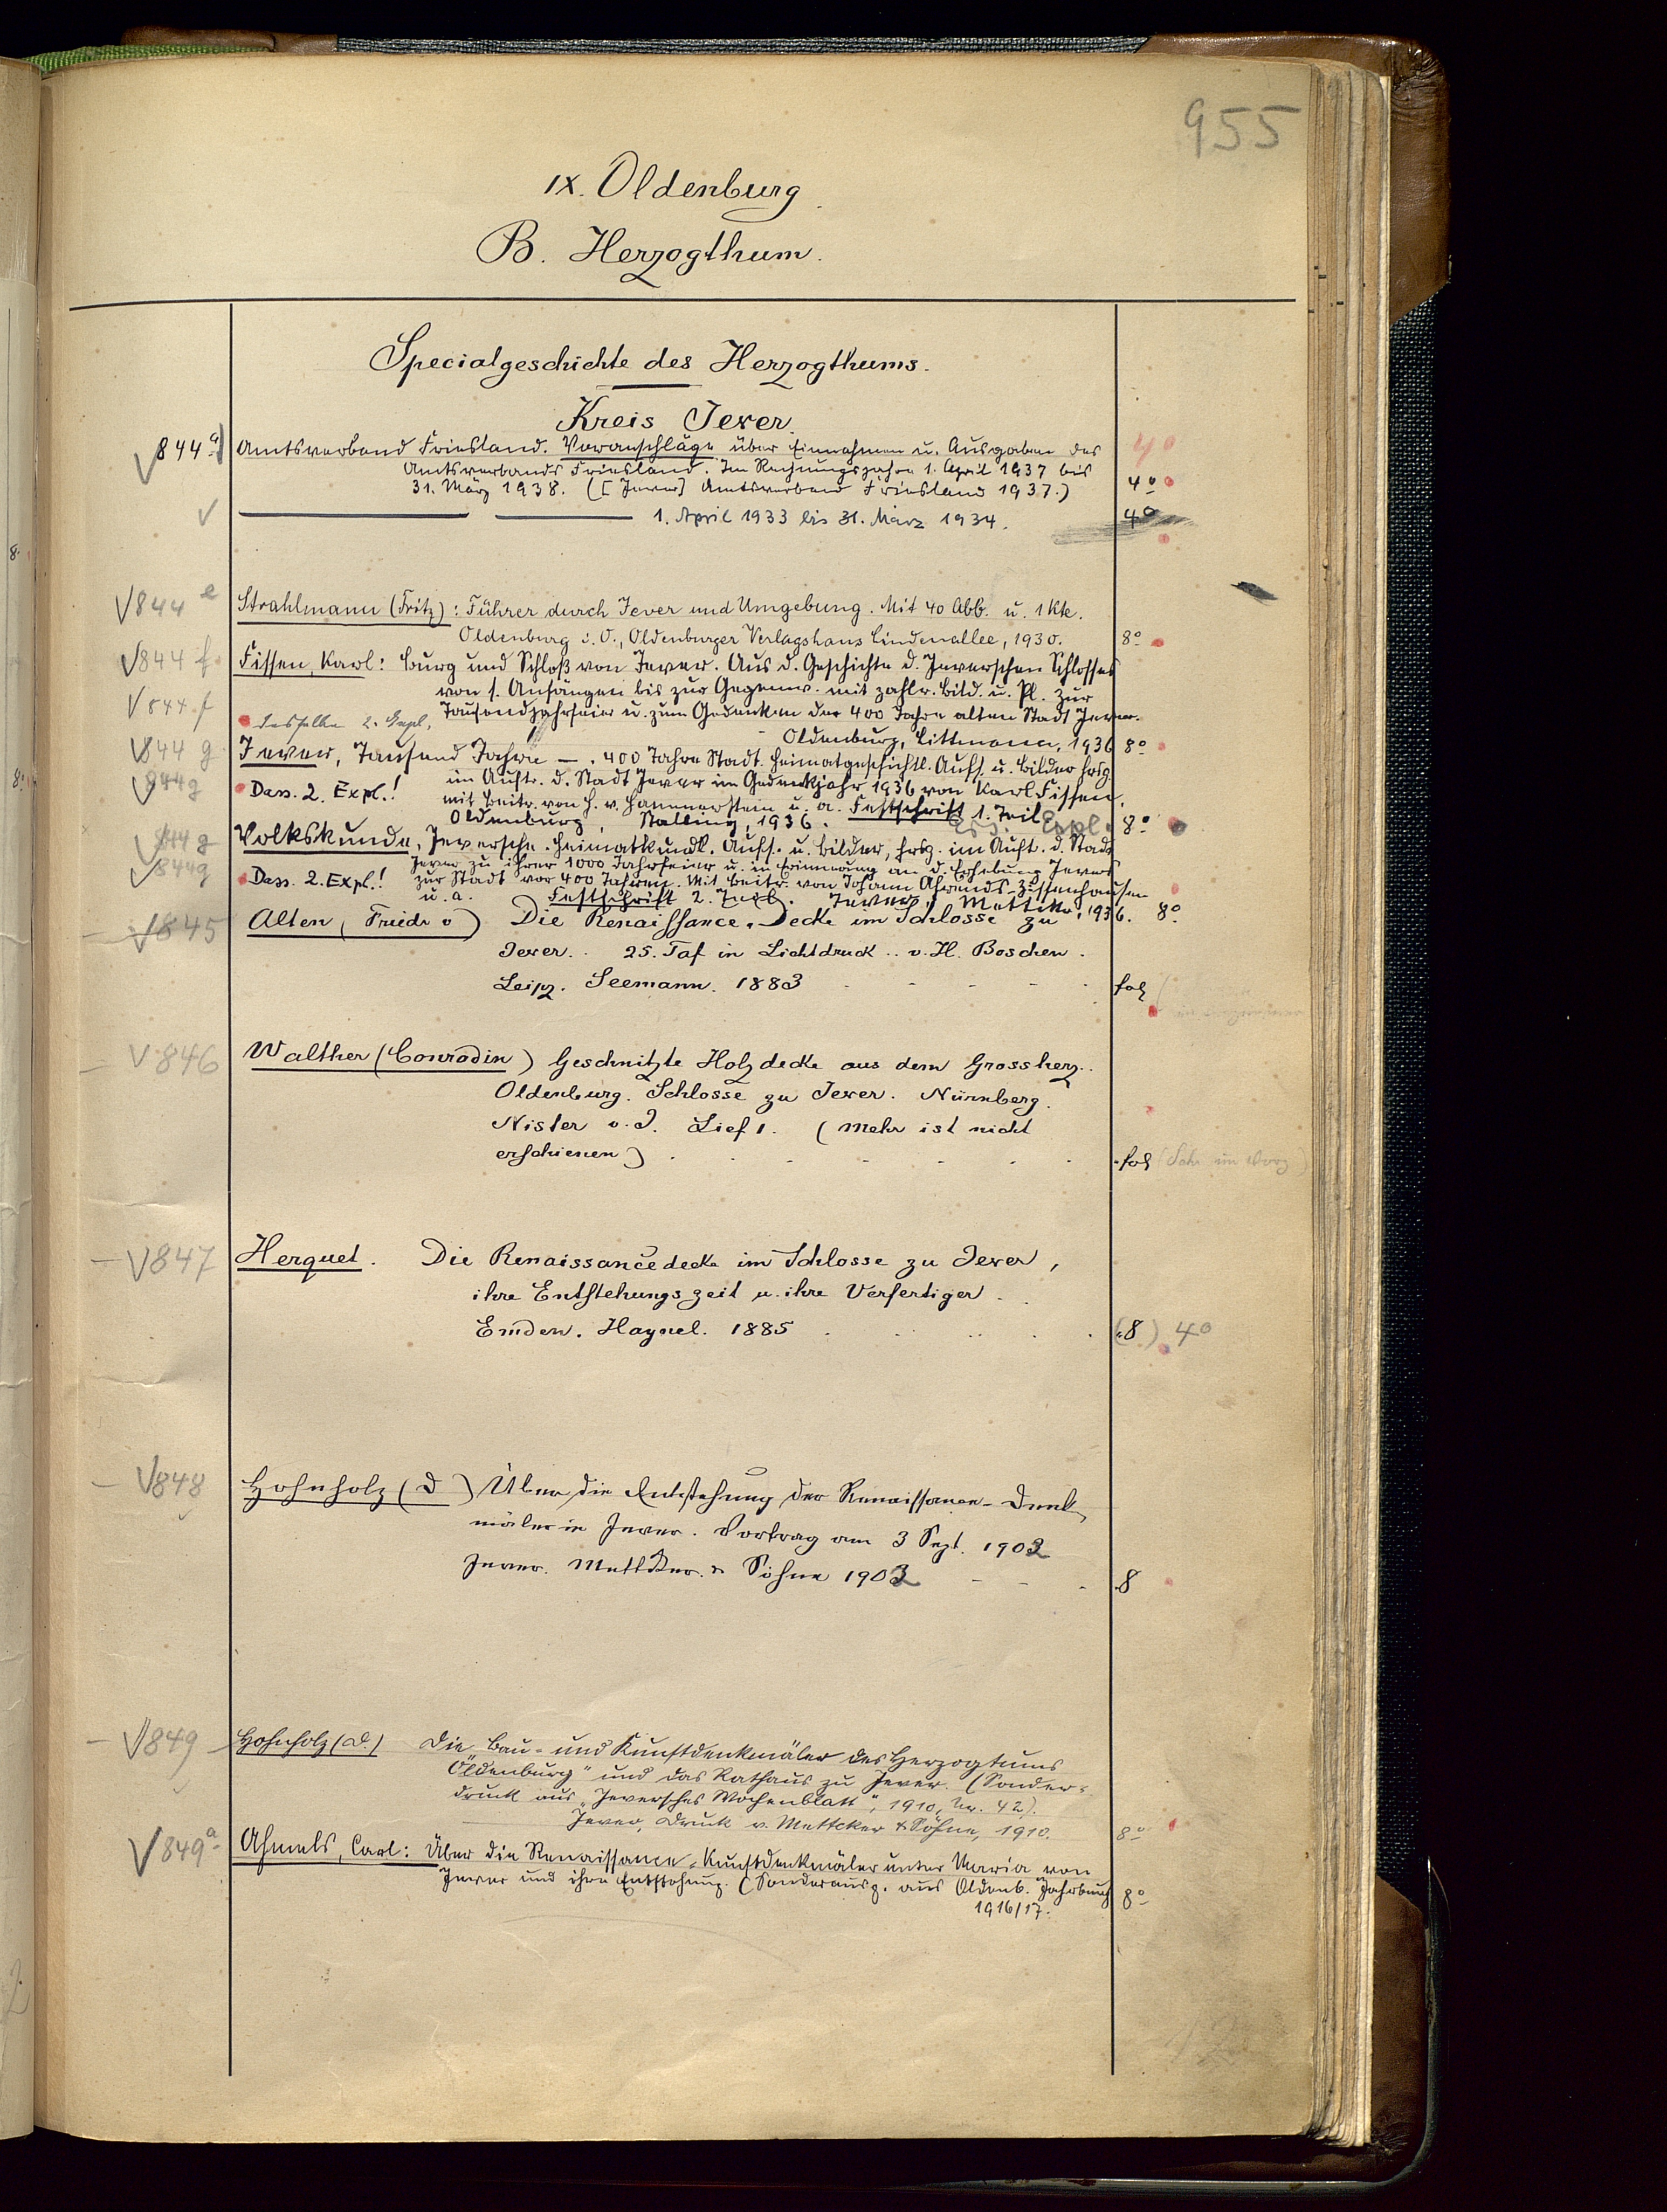 955
IX. Oldenburg
B. Herzogthum.
Specialgeschichte des Herzogthums.
Kreis Jever.
844 a) Amtsverband Friesland. Voranschläge über Einnahmen u. Ausgaben des 4°
Amtsverbands Friesland. Im Rechnungsjahre 1. April 1937 bis
31. März 1938. ([Jever] Amtsverband Friesland 1937.) 4°
1. April 1933 bis 31. März 1934. 4°
844 e Strahlmann (Fritz): Führer durch Jever und Umgebung. Mit 40 Abb. u. 1 Kte.
Oldenburg i. O., Oldenburger Verlagshaus Lindenallee, 1930. 8°
844 f Fissen, Karl: Burg und Schloß von Jever. Aus d. Geschichte d. Jeverschen Schlosses
von s. Anfängen bis zur Gegenw. mit zahlr. Bild. u. Pl. Zur
844 f Tausendjahrfeier u. zum Gedenken der 400 Jahre alten Stadt Jever.
Dasselbe 2. Expl. Oldenburg, Littmann, 1936 8°
844 g Jever, Tausend Jahre —. 400 Jahre Stadt. Heimatgeschichtl. Aufs. u. Bilder hrsg.
im Auftr. d. Stadt Jever im Gedenkjahr 1936 von Karl Fissen.
844 g Dass. 2. Expl.! mit Beitr. von H. v. Hammerstein u. a. Festschrift 1. Teil
Oldenburg, Stalling, 1936. Expl. 8°
844 g Volkskunde, Jeversche. Heimatkundl. Aufs. u. Bilder, hrsg. im Auft. d. Stadt
Jever zu ihrer 1000 Jahrfeier u. in Erinnerung an d. Erhebung Jevers
844 g Dass. 2. Expl.! zur Stadt vor 400 Jahren. Mit Beitr. von Johann Ahrends-Zissenhausen
u. a. Festschrift 2. Teil. Jever, Mettcker, 1936. 8°
845 Alten (Friedr v) Die Renaissance-Decke im Schlosse zu
Jever. 25. Taf in Lichtdruck .. v. H. Boschen.
Leipz. Seemann. 1883 fol
846 Walther (Conradin) Geschnitzte Holzdecke aus dem Grossherz.
Oldenburg. Schlosse zu Jever. Nürnberg.
Nister o. J. Lief 1. (Mehr ist nicht
erschienen) fol
847 Herquet. Die Renaissancedecke im Schlosse zu Jever,
ihre Entstehungszeit u. ihre Verfertiger.
Emden. Haynel. 1885 (8) 4°
848 Hohnholz (D) Über die Entstehung der Renaissance-Denk
mäler in Jever. Vortrag am 3 Sept. 1902
Jever. Mettcker & Söhne 1902 8
849 Hohnholz (D.) Die Bau- und Kunstdenkmäler des Herzogtums
Oldenburg" und das Rathaus zu Jever. (Sonder-
druck aus „Jeversches Wochenblatt", 1910, Nr. 42).
Jever, Druck v. Mettcker & Söhne, 1910. 8°
849 a Ahmels, Carl: Über die Renaissance-Kunstdenkmäler unter Maria von
Jever und ihre Entstehung. (Sonderausg. aus Oldenb. Jahrbuch
1916/17. 8°